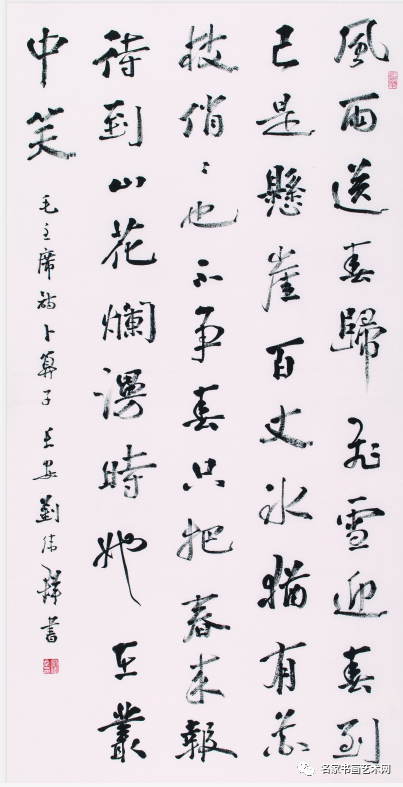 風雨送春歸飛雪迎春到
已是懸崖百丈冰猶有花
枝俏〻也不争春只把春来報
待到山花爛漫時她在叢
中笑
毛主席詞卜算子長安劉書
名家书画艺术网